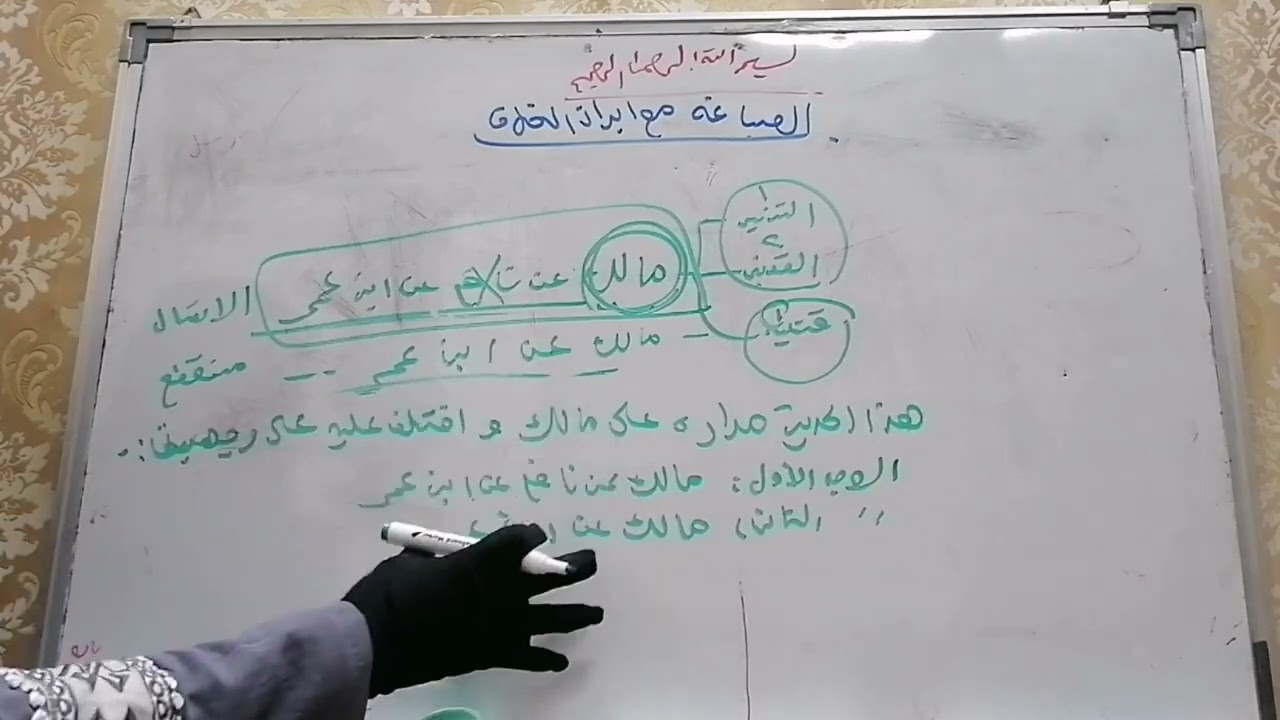 بسم الله الرحمن الرحيم
الصياغة مع ابراز الخلاف
١
التنيسي
٢
القعنبي
مالك عن نافع عن ابن عمر
الاتصال
قتيبة
مالك عن ابن عمر -- منقطع
هذا الحديث مداره على مالك و اختلف عليه على وجهين:.
الوجه الأول: مالك عن نافع عن ابن عمر
〃 الثاني: مالك عن